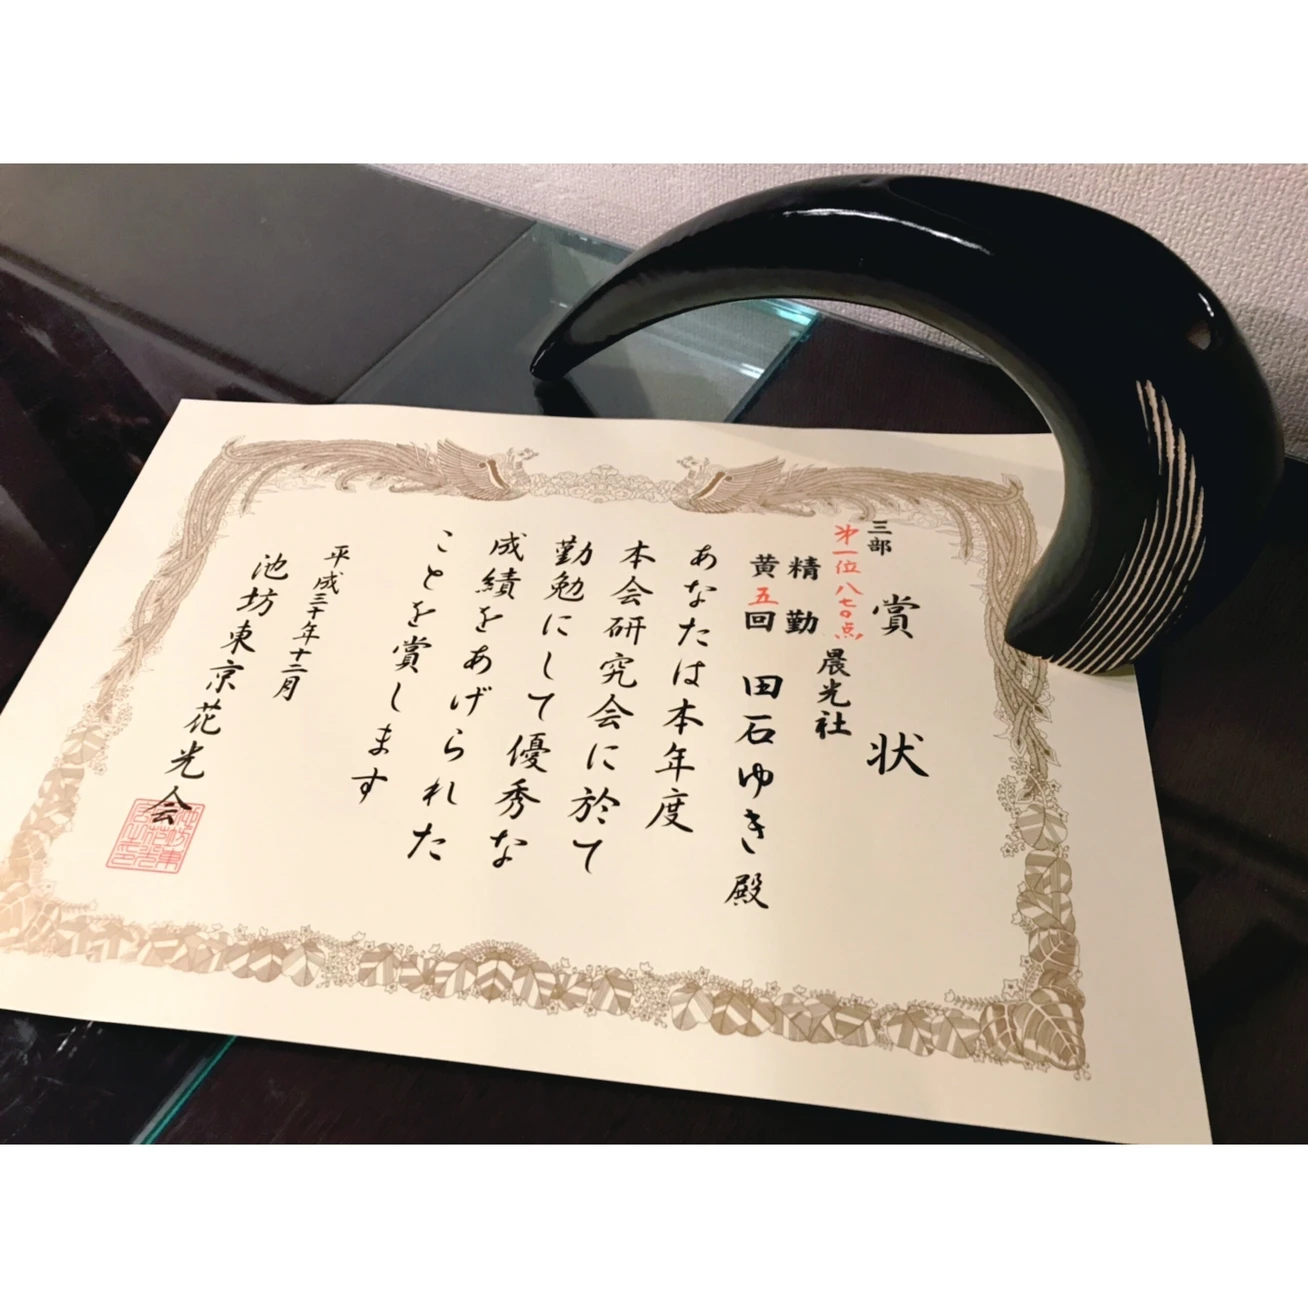 三部
賞状
第一位 八七〇点
晨光社
精勤
黄五回
田石ゆき 殿
あなたは本年度
本会研究会に於て
勤勉にして優秀な
成績をあげられた
ことを賞します
平成三十年十二月
池坊東京花光会